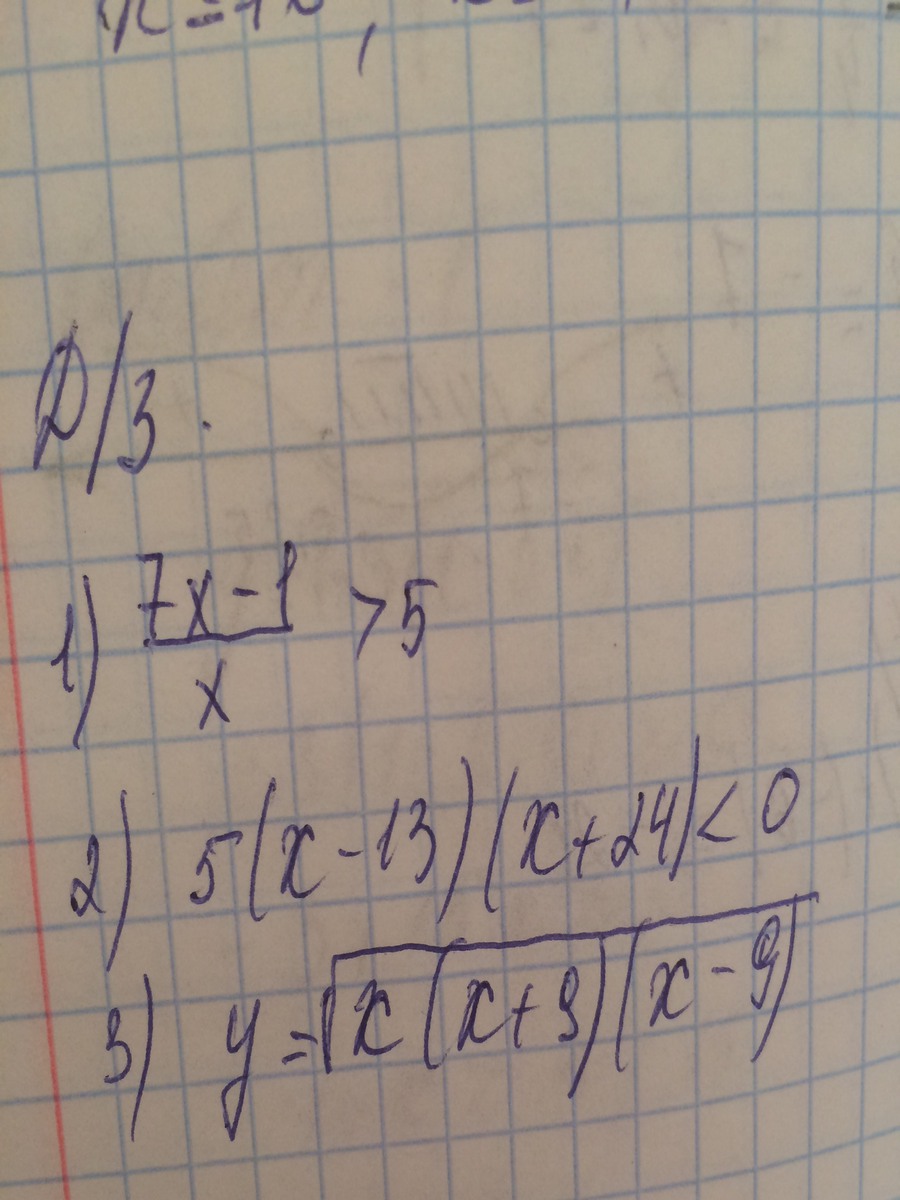 Д/З.
1) (7x-1)/x > 5
2) 5(x-13)(x+24) < 0
3) y = √(x(x+9)(x-9))